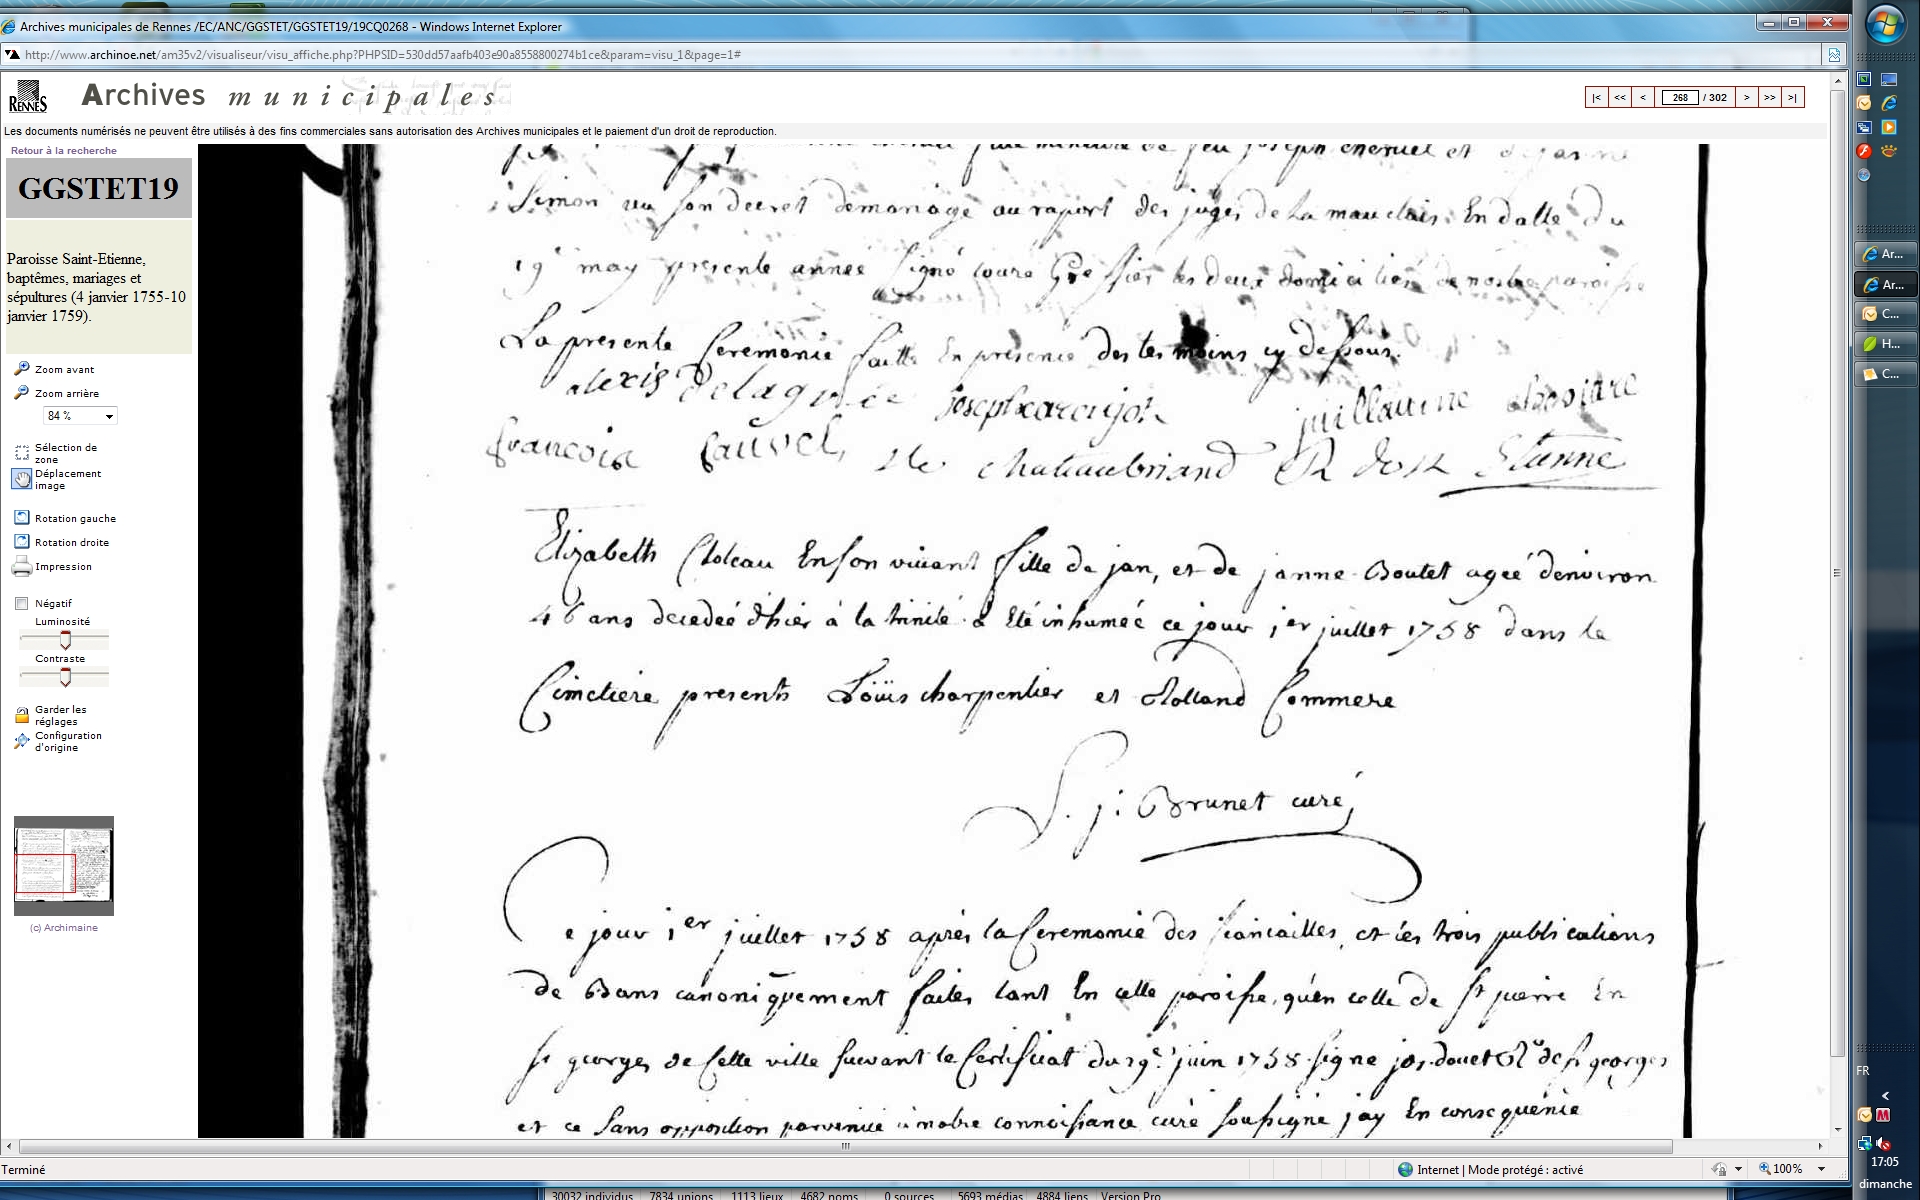 Archives municipales de Rennes /EC/ANC/GGSTET/GGSTET19/19CQ0268 - Windows Internet Explorer
http://www.archinoe.net/am35v2/visualiseur/visu_affiche.php?PHPSID=530dd57aafb403e90a8558800274b1ce&param=visu_1&page=1#
RENNES
Archives municipales
|< << < 268 / 302 > >> >|
Les documents numérisés ne peuvent être utilisés à des fins commerciales sans autorisation des Archives municipales et le paiement d'un droit de reproduction.
Retour à la recherche
GGSTET19
Paroisse Saint-Etienne,
baptêmes, mariages et
sépultures (4 janvier 1755-10
janvier 1759).
Zoom avant
Zoom arrière
84 %
Sélection de
zone
Déplacement
image
Rotation gauche
Rotation droite
Impression
Négatif
Luminosité
Contraste
Garder les
réglages
Configuration
d'origine
(c) Archimaine
fille mineure de feu joseph cheruel et
Simon vu son decret de mariage au raport des juges de la En datte du
19e may presente année signé Greffier les deux domiciliés de nostre paroisse
La presente Ceremonie faitte En presence des temoins cy dessous.
alexis delagrée juillaume
francois Cauvel, de chateaubriand R de St Etienne
Elizabeth En son vivant fille de jan, et de janne Boutet ageé d'environ
46 ans decedeé d'hier à la trinité a Eté inhumeé ce jour 1er juillet 1758 dans le
Cimetiere presents Loüis charpentier et Rolland Commere
j. Brunet curé,
Ce jour 1er juillet 1758 aprés la Ceremonie des fiancailles, et les trois publications
de Bans canoniquement faites tant En cette paroisse, qu'en celle de st pierre En
st georges de Cette ville suivant le Certificat du 29e juin 1758 signe jos. douet Rr de st georges
et ce sans opposition parvenue à notre connoissance curé soussigne jay En consequence
Terminé
Internet | Mode protégé : activé
100%
30032 individus 7834 unions 1113 lieux 4682 noms 0 sources 5693 médias 4884 liens Version Pro
Ar...
Ar...
C...
H...
C...
FR
17:05
dimanche